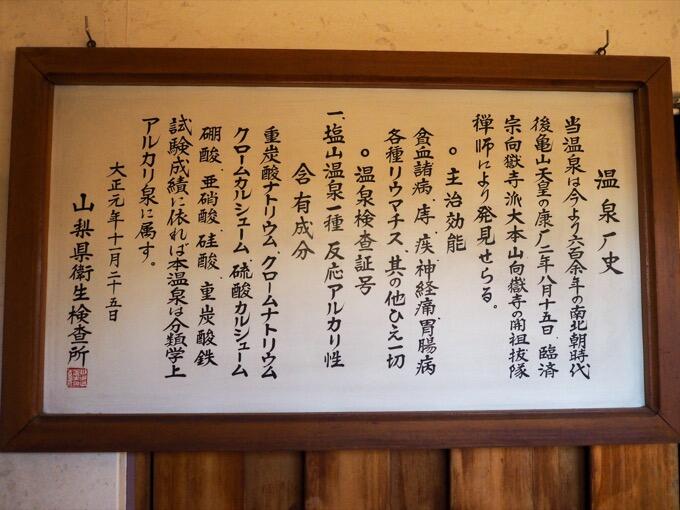 温泉厂史
当温泉は今より六百余年の南北朝時代
後亀山天皇の康广二年八月十五日、臨済
宗向嶽寺派大本山向嶽寺の開祖抜隊
禅師により発見せらる。
○主治効能
貧血諸病、痔、疾、神経痛、胃腸病
各種リウマチス、其の他ひえ一切
○温泉検査証号
一、塩山温泉一種 反応アルカリ性
含有成分
重炭酸ナトリウム クロームナトリウム
クロームカルシューム 硫酸カルシューム
硼酸、亜硝酸、硅酸、重炭酸鉄
試験成績に依れば本温泉は分類学上
アルカリ泉に属す。
大正元年十一月二十五日
山梨県衛生検査所